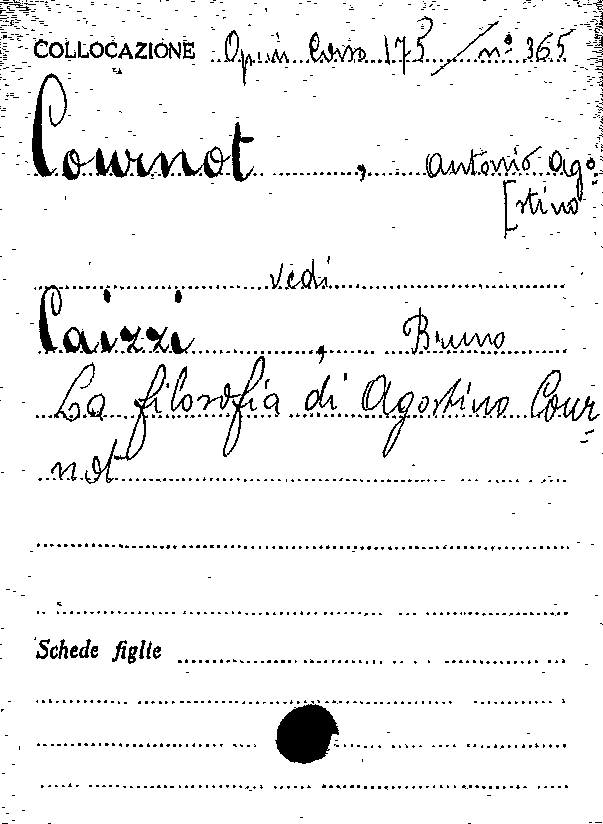 COLLOCAZIONE Opusc Corso 175 / n° 365
Cournot, Antonio Ago
[stino
vedi
Caizzi, Bruno
La filosofia di Agostino Cour=
not
Schede figlie